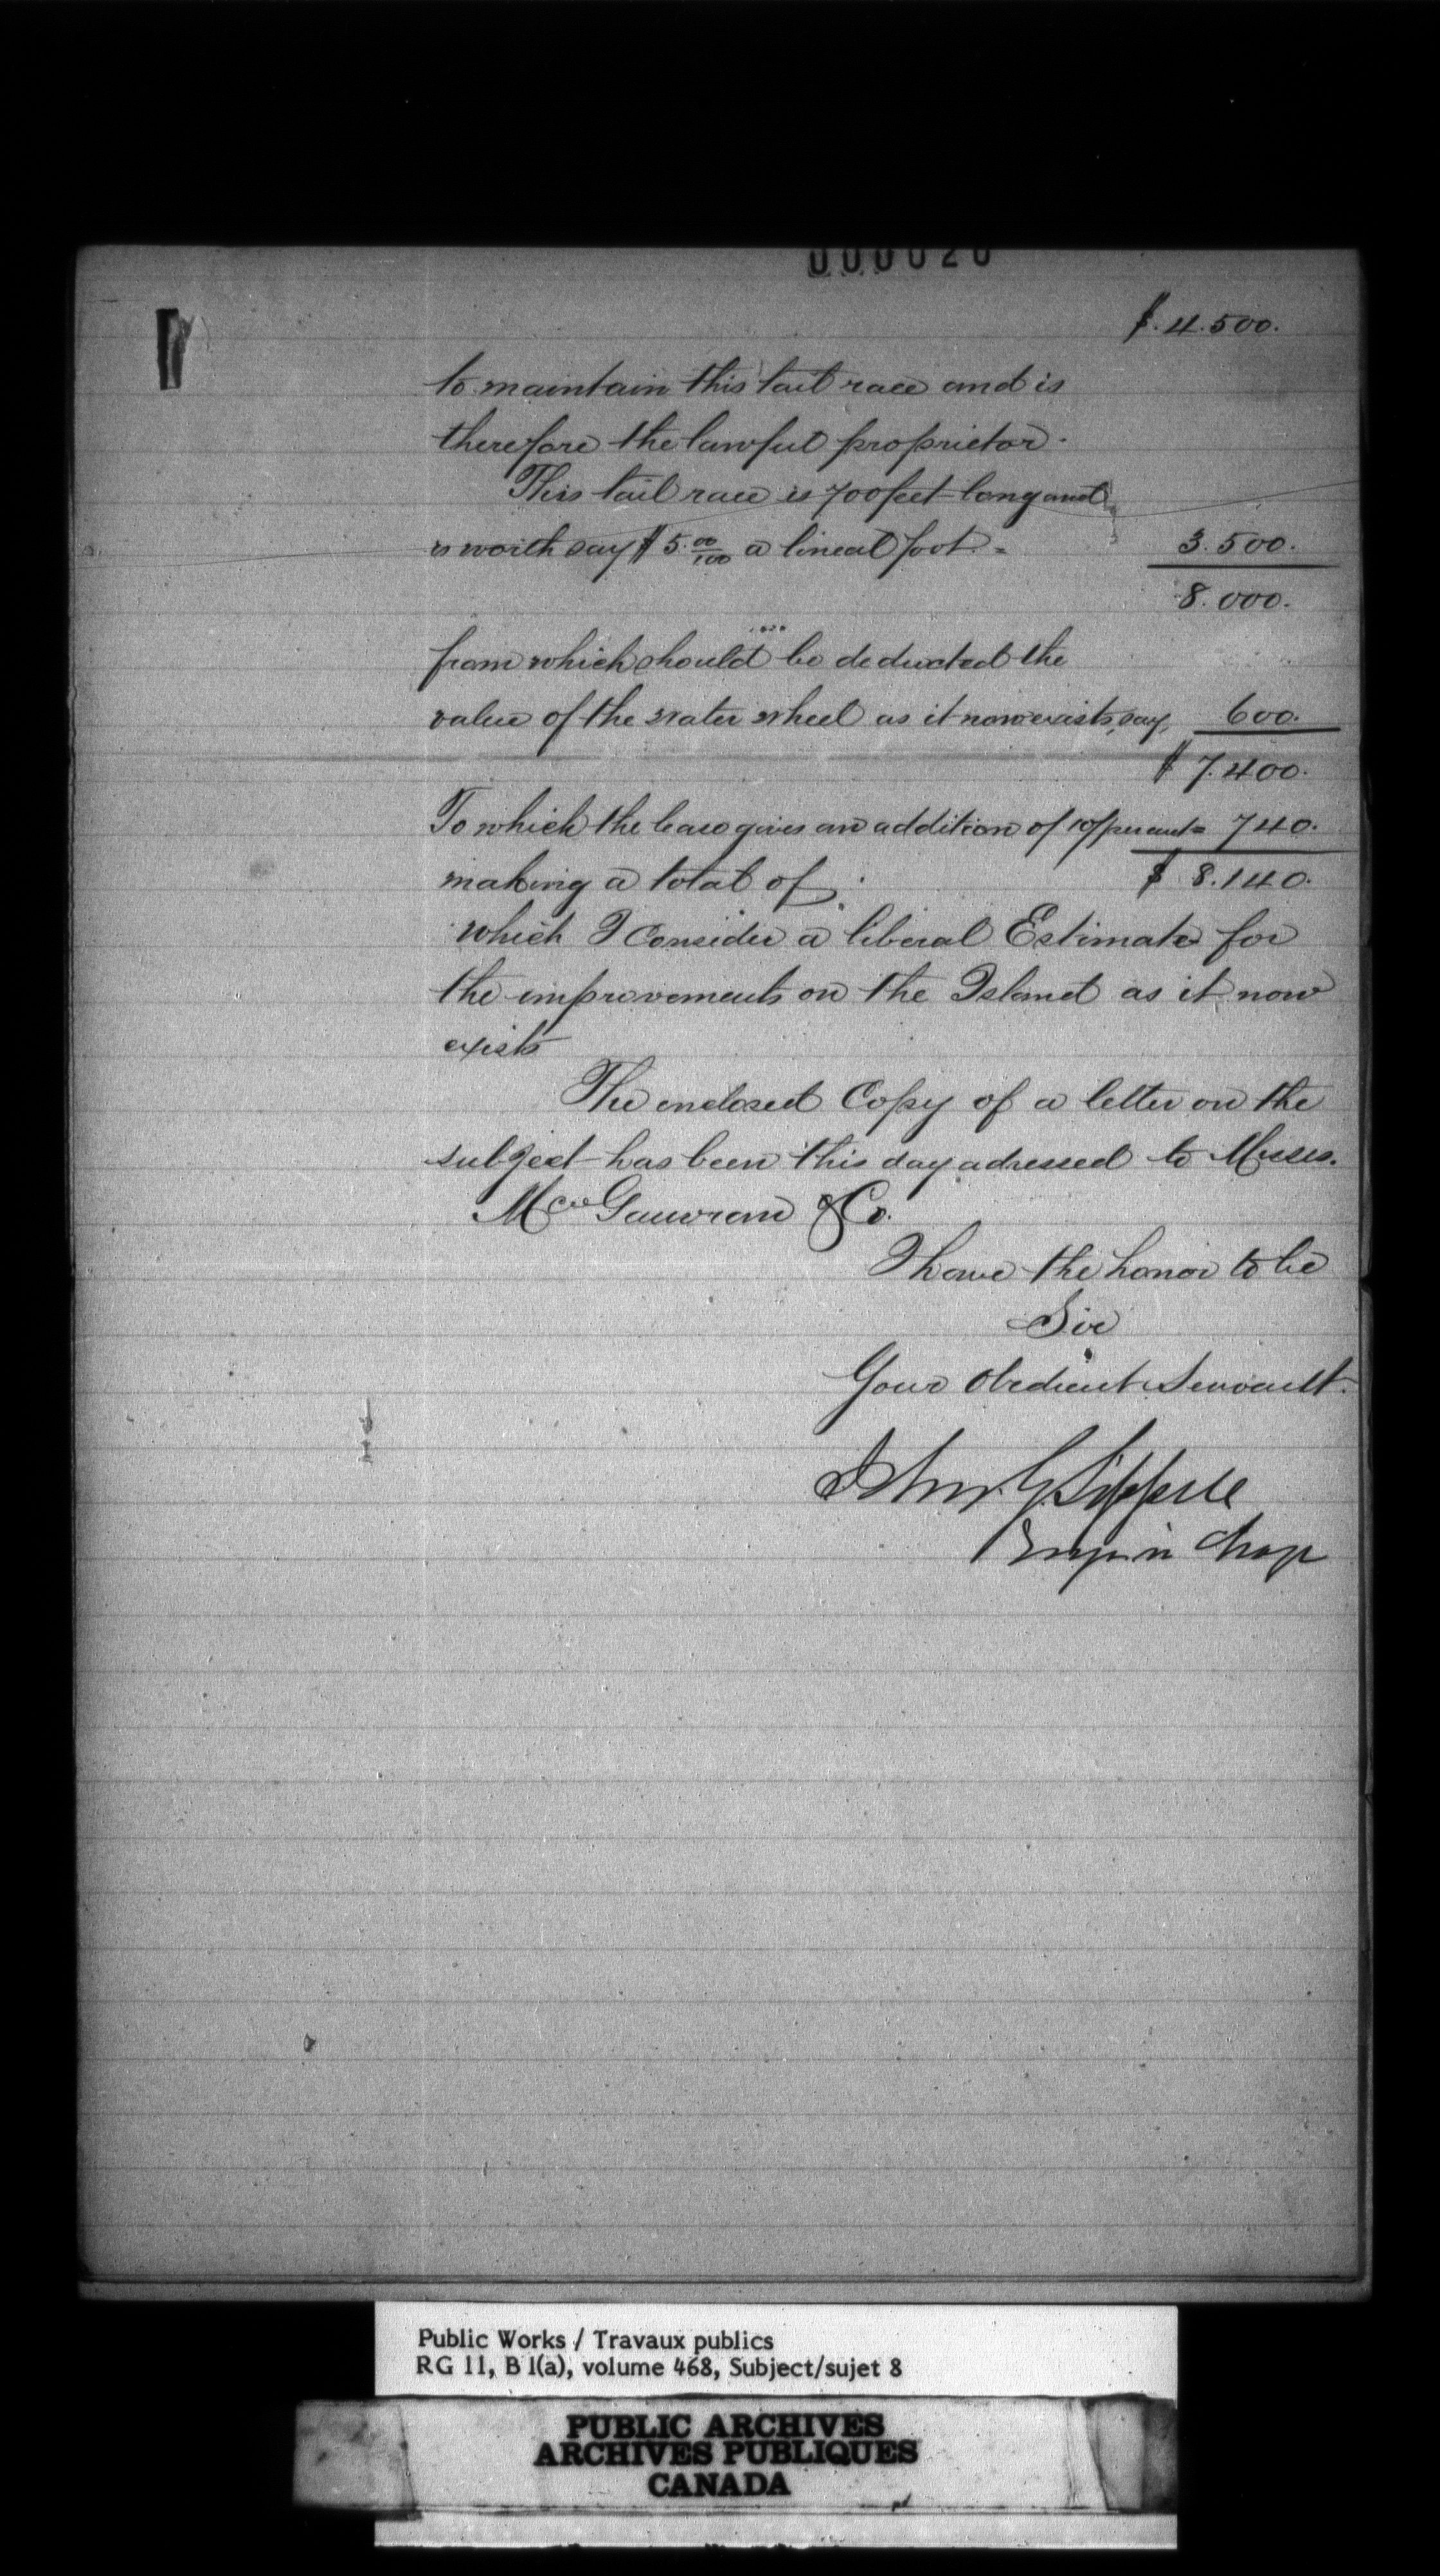 000020
$.4.500.
to maintain this tail race and is
therefore the lawful proprietor.
This tail race is 700 feet long and
is worth say $5.00/100 a lineal foot. = 3.500.
8.000.
from which should be deducted the
value of the water wheel as it now exists, say, 600.
$7.400.
To which the lease gives an addition of 10/percent = 740.
making a total of $8.140.
which I consider a liberal Estimate for
the improvements on the Island as it now
exists
The enclosed Copy of a letter on the
subject has been this day adressed to Messrs.
McGauvran & Co.
I have the honor to be
Sir
Your Obedient Servault.
John G Sippell
Engr in Charge
Public Works / Travaux publics
RG 11, B 1(a), volume 468, Subject/sujet 8
PUBLIC ARCHIVES
ARCHIVES PUBLIQUES
CANADA